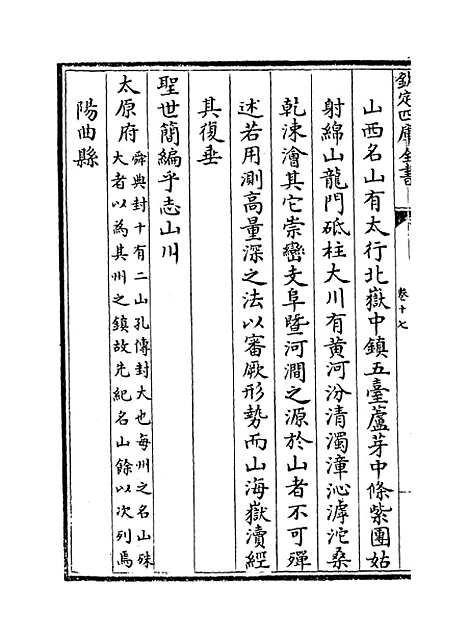 欽定四庫全書
卷十七
山西名山有太行北嶽中鎮五臺蘆芽中條紫團姑
射綿山龍門砥柱大川有黄河汾清濁漳沁滹沱桑
乾涑澮其它崇巒支阜暨河澗之源於山者不可殫
述若用測高量深之法以審厥形勢而山海嶽瀆經
其復垂
聖世簡編乎志山川
太原府
舜典封十有二山孔傳封大也每州之名山殊
大者以為其州之鎮故先紀名山餘以次列焉
陽曲縣